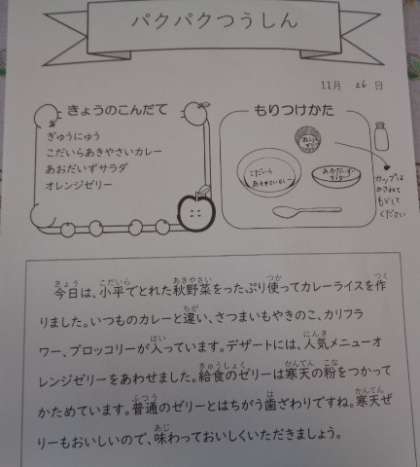 パクパクつうしん
11月 26 日
きょうのこんだて
ぎゅうにゅう
こだいらあきやさいカレー
あおだいずサラダ
オレンジゼリー
もりつけかた
こだいら
カップは
かさねて
もどして
ください
今日は、小平でとれた秋野菜をたっぷり使ってカレーライスを作
りました。いつものカレーと違い、さつまいもやきのこ、カリフラ
ワー、ブロッコリーが入っています。デザートには、人気メニューオ
レンジゼリーをあわせました。給食のゼリーは寒天の粉をつかって
かためています。普通のゼリーとはちがう歯ざわりですね。寒天ゼ
リーもおいしいので、味わっておいしくいただきましょう。